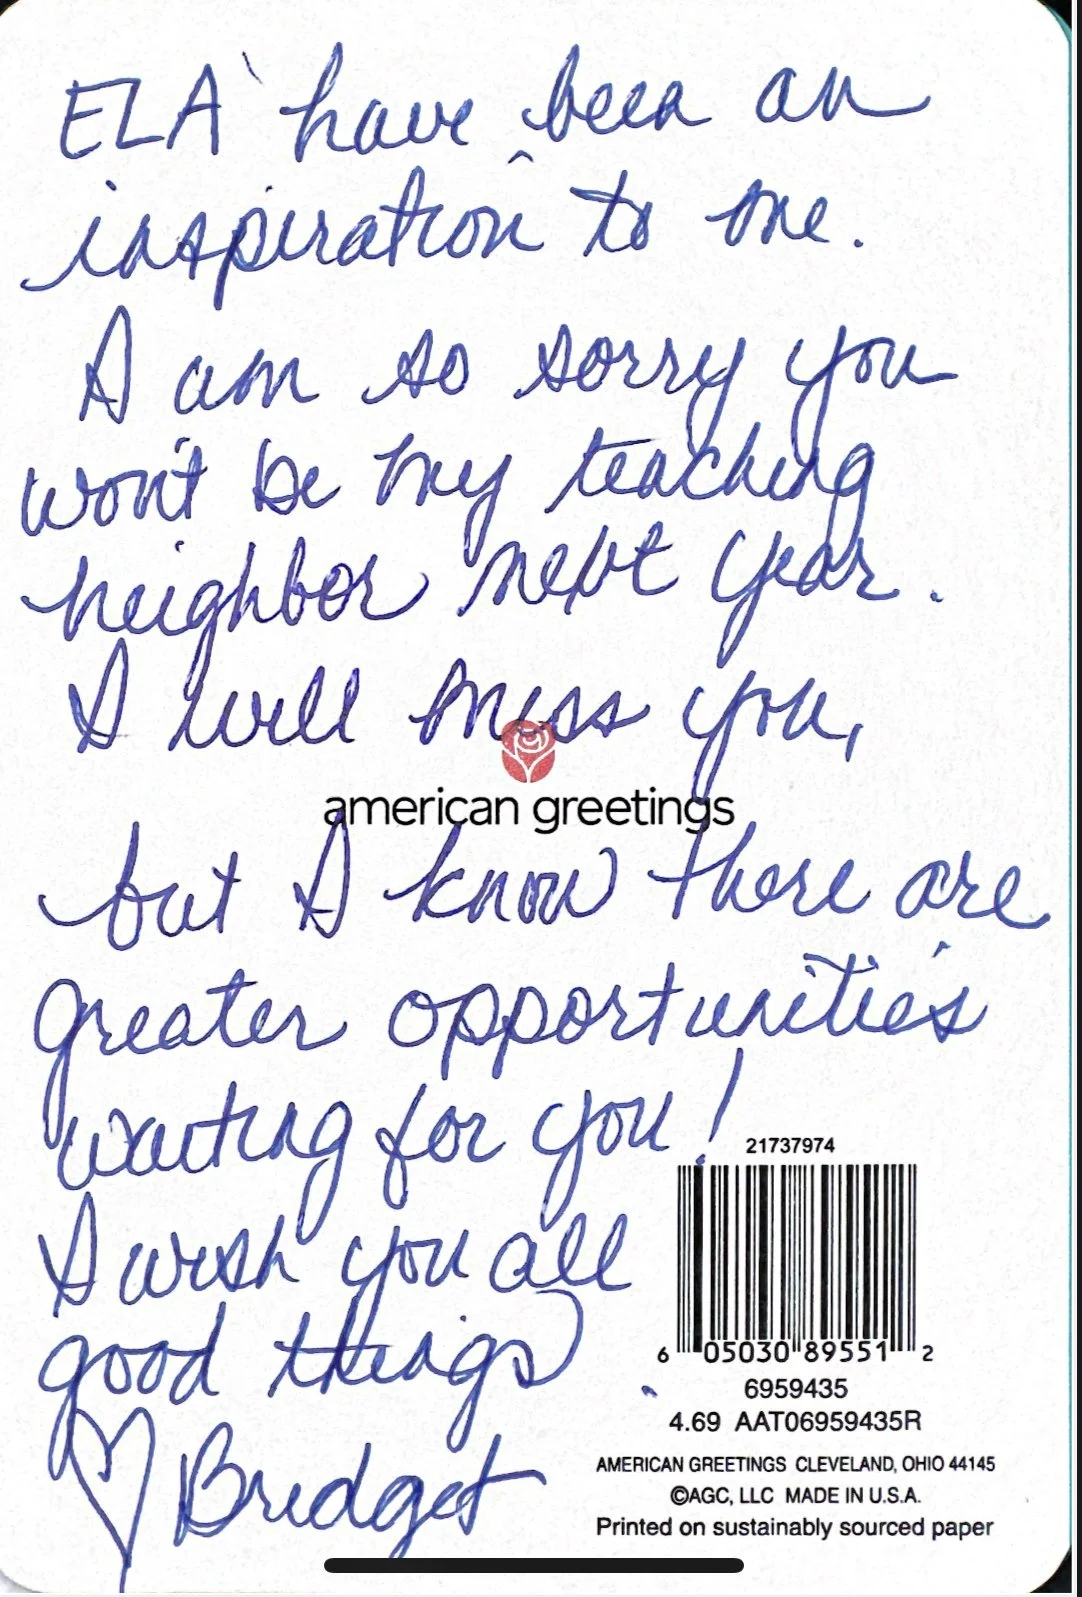 ELA have been an
inspiration to me.
I am so sorry you
won't be my teaching
neighbor next year.
I will miss you,
american greetings
but I know there are
greater opportunities
waiting for you!
21737974
I wish you all
good things.
6 05030 89551 2
6959435
4.69 AAT06959435R
♡ Bridget
AMERICAN GREETINGS CLEVELAND, OHIO 44145
©AGC, LLC MADE IN U.S.A.
Printed on sustainably sourced paper